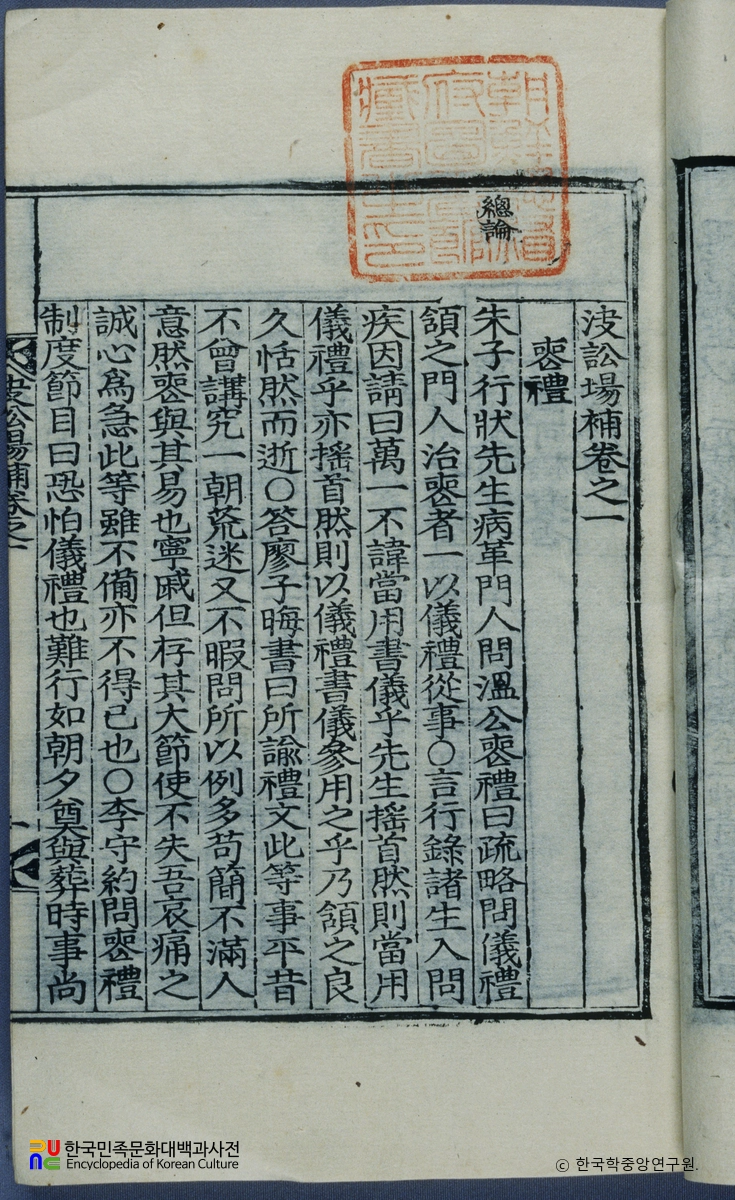 決訟場補卷之一
喪禮
總論
朱子行狀先生病革門人問溫公喪禮曰疏略問儀禮
頷之門人治喪者一以儀禮從事○言行錄諸生入問
疾因請曰萬一不諱當用書儀乎先生搖首然則當用
儀禮乎亦搖首然則以儀禮書儀參用之乎乃頷之良
久恬然而逝○答廖子晦書曰所諭禮文此等事平昔
不曾講究一朝荒迷又不暇問所以例多苟簡不滿人
意然喪與其易也寧戚但存其大節使不失吾哀痛之
誠心爲急此等雖不備亦不得已也○李守約問喪禮
制度節目曰恐怕儀禮也難行如朝夕奠與葬時事尚
朝鮮總督府圖書館藏書之印
한국민족문화대백과사전
Encyclopedia of Korean Culture
© 한국학중앙연구원.